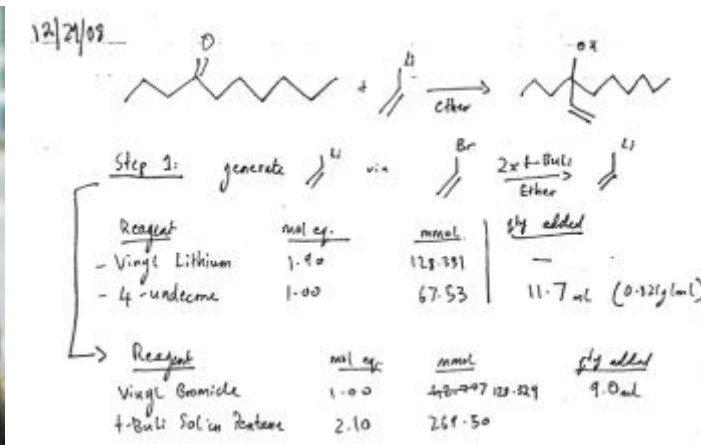 12/29/08
O
Li
OH
+
Ether
Step 1: generate Li via Br 2x t-BuLi Li
Ether
Reagent mol eq. mmol qty added
- Vinyl Lithium 1.90 128.331 —
- 4-undecone 1.00 67.53 11.7 mL (0.826g/mL)
Reagent mol eq. mmol qty added
Vinyl Bromide 1.00 128.329 9.0mL
t-BuLi Sol'in Pentane 2.10 269.50